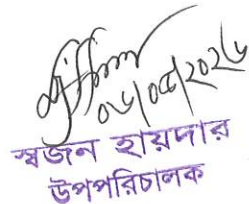 ০৬/০৫/২০২৬
স্বজন হায়দার
উপপরিচালক